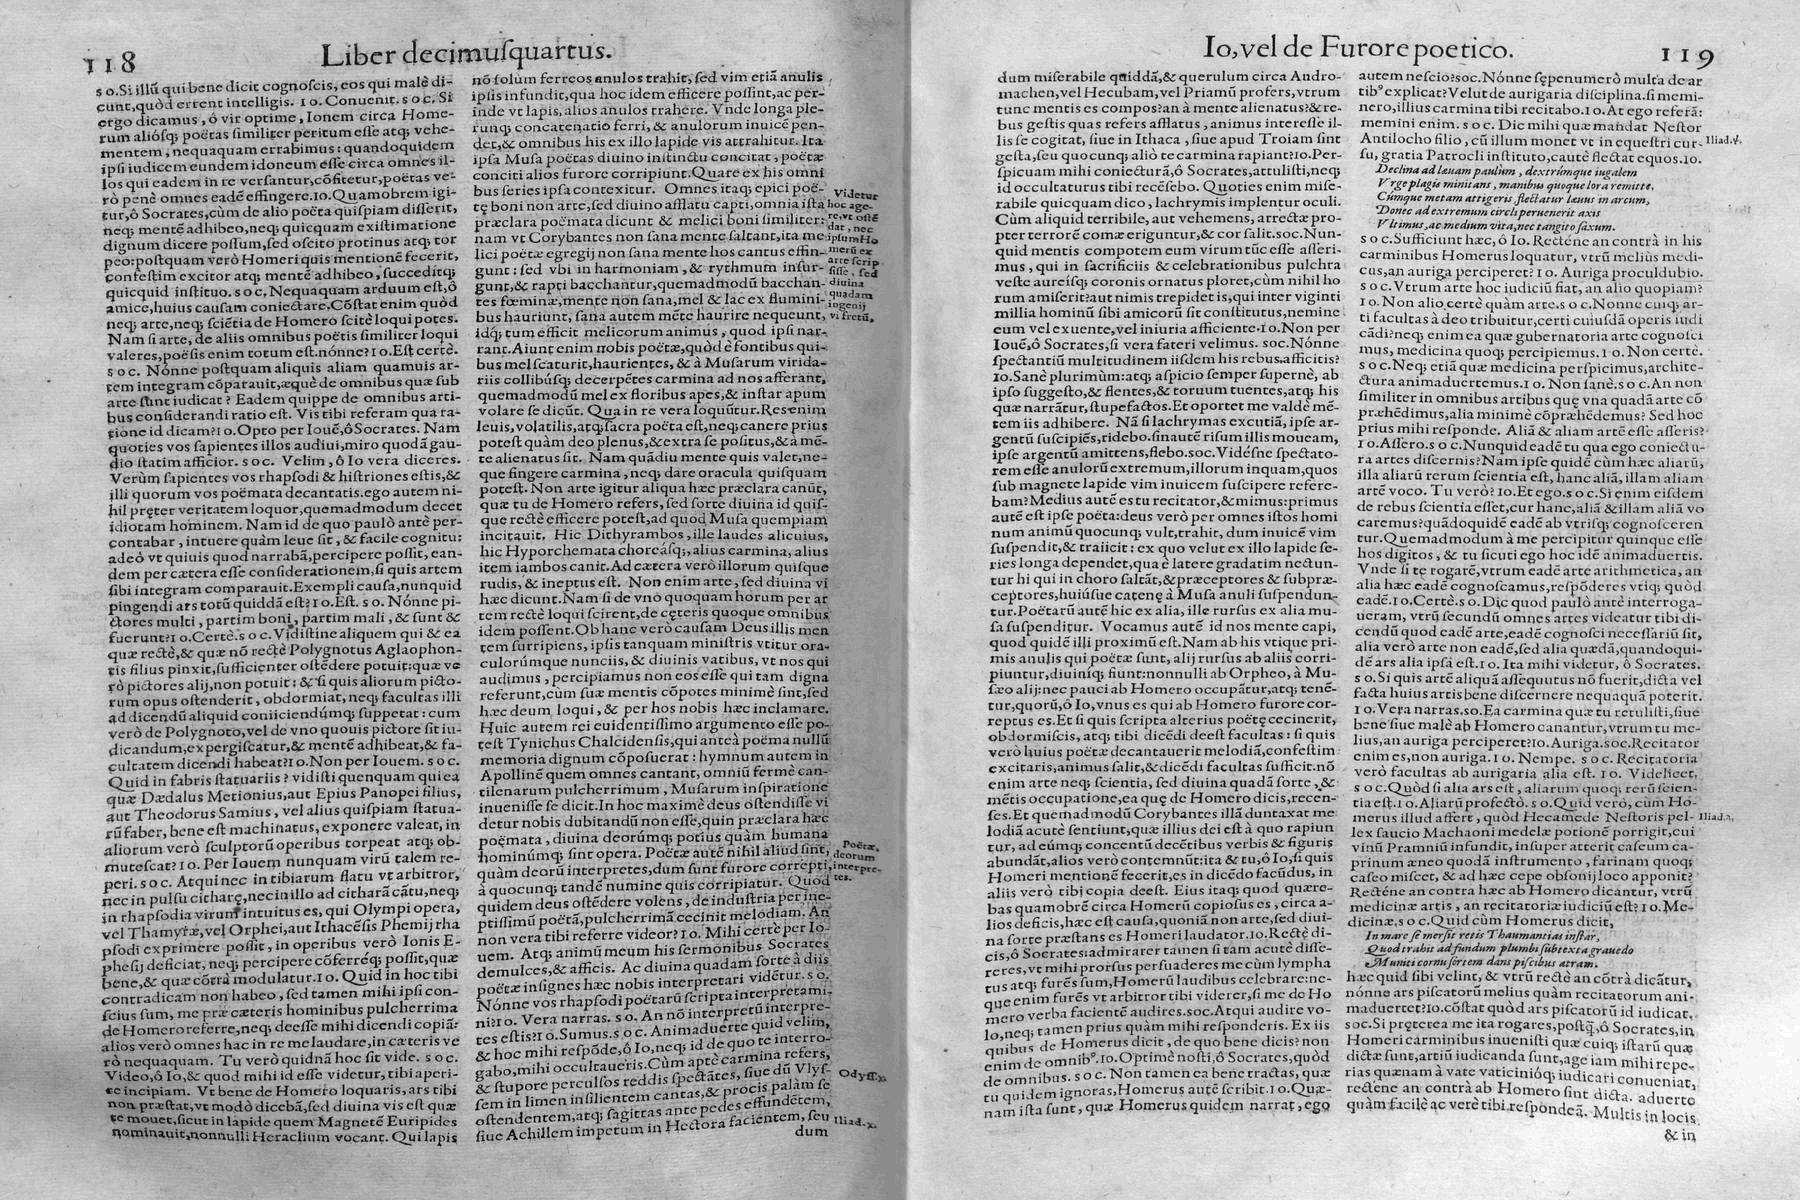 118
Liber decimuſquartus.
s o. Si illũ qui bene dicit cognoſcis, eos qui malè di-
cunt, quòd errent intelligis. I o. Conuenit. s o c. Si
ergo dicamus, ô vir optime, Ionem circa Home-
rum alióſq; poëtas ſimiliter peritum eſſe atq; vehe-
mentem, nequaquam errabimus: quandoquidem
ipſi iudicem eundem idoneum eſſe circa omnes il-
los qui eadem in re verſantur, cõfitetur, poëtas ve-
rò penè omnes eadē effingere. I o. Quamobrem igi-
tur, ô Socrates, cùm de alio poëta quiſpiam diſſerit,
neq; mentē adhibeo, neq; quicquam exiſtimatione
dignum dicere poſſum, ſed oſcito protinus atq; tor
peo: poſtquam verò Homeri quis mentionē fecerit,
confeſtim excitor atq; mentē adhibeo, ſucceditq;
quicquid inſtituo. s o c. Nequaquam arduum eſt, ô
amice, huius cauſam coniectare. Cõſtat enim quòd
neq; arte, neq; ſciētia de Homero ſcitè loqui potes.
Nam ſi arte, de aliis omnibus poëtis ſimiliter loqui
valeres, poëſis enim totum eſt. nónne? I o. Eſt certè.
s o c. Nónne poſtquam aliquis aliam quamuis ar-
tem integram cõparauit, æquè de omnibus quæ ſub
arte ſunt iudicat? Eadem quippe de omnibus arti-
bus conſiderandi ratio eſt. Vis tibi referam qua ra-
tione id dicam? I o. Opto per Iouē, ô Socrates. Nam
quoties vos ſapientes illos audiui, miro quodã gau-
dio ſtatim afficior. s o c. Velim, ô Io vera diceres.
Verùm ſapientes vos rhapſodi & hiſtriones eſtis, &
illi quorum vos poëmata decantatis. ego autem ni-
hil pręter veritatem loquor, quemadmodum decet
idiotam hominem. Nam id de quo paulò antè per-
contabar, intuere quàm leue ſit, & facile cognitu:
adeò vt quiuis quod narrabã, percipere poſſit, ean-
dem per cætera eſſe conſiderationem, ſi quis artem
ſibi integram comparauit. Exempli cauſa, nunquid
pingendi ars totũ quiddã eſt? I o. Eſt. s o. Nónne pi-
ctores multi, partim boni, partim mali, & ſunt &
fuerunt? I o. Certè. s o c. Vidiſtine aliquem qui & ea
quæ rectè, & quæ nõ rectè Polygnotus Aglaophon-
tis filius pinxit, ſufficienter oſtēdere potuit: quæ ve
rò pictores alij, non potuit: & ſi quis aliorum picto-
rum opus oſtenderit, obdormiat, neq; facultas illi
ad dicendũ aliquid coniiciendúmq; ſuppetat: cum
verò de Polygnoto, vel de vno quouis pictore ſit iu-
dicandum, expergiſcatur, & mentē adhibeat, & fa-
cultatem dicendi habeat? I o. Non per Iouem. s o c.
Quid in fabris ſtatuariis? vidiſti quenquam qui ea
quæ Dædalus Metionius, aut Epius Panopei filius,
aut Theodorus Samius, vel alius quiſpiam ſtatua-
rũ faber, bene eſt machinatus, exponere valeat, in
aliorum verò ſculptorũ operibus torpeat atq; ob-
muteſcat? I o. Per Iouem nunquam virũ talem re-
peri. s o c. Atqui nec in tibiarum flatu vt arbitror,
nec in pulſu citharę, nec in illo ad citharã cãtu, neq;
in rhapſodia virum intuitus es, qui Olympi opera,
vel Thamyræ, vel Orphei, aut Ithacēſis Phemij rha
pſodi exprimere poſſit, in operibus verò Ionis E-
pheſij deficiat, neq; percipere cõferréq; poſſit, quæ
bene, & quæ cõtrà modulatur. I o. Quid in hoc tibi
contradicam non habeo, ſed tamen mihi ipſi con-
ſcius ſum, me præ cæteris hominibus pulcherrima
de Homero referre, neq; deeſſe mihi dicendi copiã:
alios verò omnes hac in re me laudare, in cæteris ve
rò nequaquam. Tu verò quidnã hoc ſit vide. s o c.
Video, ô Io, & quod mihi id eſſe videtur, tibi aperi-
re incipiam. Vt bene de Homero loquaris, ars tibi
non præſtat, vt modò dicebã, ſed diuina vis eſt quæ
te mouet, ſicut in lapide quem Magnetē Euripides
nominauit, nonnulli Heraclium vocant. Qui lapis
nõ ſolùm ferreos anulos trahit, ſed vim etiã anulis
ipſis infundit, qua hoc idem efficere poſſint, ac per-
inde vt lapis, alios anulos trahere. Vnde longa ple-
runq; concatenatio ferri, & anulorum inuicē pen-
det, & omnibus his ex illo lapide vis attrahitur. Ita
ipſa Muſa poëtas diuino inſtinctu concitat, poëtæ
conciti alios furore corripiunt. Quare ex his omni
bus ſeries ipſa contexitur. Omnes itaq; epici poë-
tę boni non arte, ſed diuino afflatu capti, omnia iſta
præclara poëmata dicunt & melici boni ſimiliter:
nam vt Corybantes non ſana mente ſaltant, ita me
lici poëtæ egregij non ſana mente hos cantus effin-
gunt: ſed vbi in harmoniam, & rythmum inſur-
gunt, & rapti bacchantur, quemadmodũ bacchan-
tes fœminæ, mente non ſana, mel & lac ex flumini-
bus hauriunt, ſana autem mēte haurire nequeunt,
idq; tum efficit melicorum animus, quod ipſi nar-
rant. Aiunt enim nobis poëtæ, quòd è fontibus qui-
bus mel ſcaturit, haurientes, & à Muſarum virida-
riis collibúſq; decerpētes carmina ad nos afferant,
quemadmodũ mel ex floribus apes, & inſtar apum
volare ſe dicũt. Qua in re vera loquũtur. Res enim
leuis, volatilis, atq; ſacra poëta eſt, neq; canere prius
poteſt quàm deo plenus, & extra ſe poſitus, & à mē-
te alienatus ſit. Nam quãdiu mente quis valet, ne-
que fingere carmina, neq; dare oracula quiſquam
poteſt. Non arte igitur aliqua hæc præclara canũt,
quæ tu de Homero refers, ſed ſorte diuina id quiſ-
que rectè efficere poteſt, ad quod Muſa quempiam
incitauit. Hic Dithyrambos, ille laudes alicuius,
hic Hyporchemata choreáſq;, alius carmina, alius
item iambos canit. Ad cætera verò illorum quiſque
rudis, & ineptus eſt. Non enim arte, ſed diuina vi
hæc dicunt. Nam ſi de vno quoquam horum per ar
tem rectè loqui ſcirent, de cęteris quoque omnibus
idem poſſent. Ob hanc verò cauſam Deus illis men
tem ſurripiens, ipſis tanquam miniſtris vtitur ora-
culorúmque nunciis, & diuinis vatibus, vt nos qui
audimus, percipiamus non eos eſſe qui tam digna
referunt, cùm ſuæ mentis cõpotes minimè ſint, ſed
hæc deum loqui, & per hos nobis hæc inclamare.
Huic autem rei euidentiſſimo argumento eſſe po-
teſt Tynichus Chalcidenſis, qui anteà poëma nullũ
memoria dignum cõpoſuerat: hymnum autem in
Apollinē quem omnes cantant, omniũ fermè can-
tilenarum pulcherrimum, Muſarum inſpiratione
inueniſſe ſe dicit. In hoc maximè deus oſtendiſſe vi
detur nobis dubitandũ non eſſe, quin præclara hæc
poëmata, diuina deorúmq; potius quàm humana
hominúmq; ſint opera. Poëtæ autē nihil aliud ſint,
quàm deorũ interpretes, dum ſunt furore correpti,
à quocunq; tandē numine quis corripiatur. Quod
quidem deus oſtēdere volens, de induſtria per ine-
ptiſſimũ poëtã, pulcherrimã cecinit melodiam. An
non vera tibi referre videor? I o. Mihi certè per Io-
uem. Atq; animũ meum his ſermonibus Socrates
demulces, & afficis. Ac diuina quadam ſorte à diis
poëtæ inſignes hæc nobis interpretari vidētur. s o.
Nónne vos rhapſodi poëtarũ ſcripta interpretami-
ni? I o. Vera narras. s o. An nõ interpretũ interpre-
tes eſtis? I o. Sumus. s o c. Animaduerte quid velim,
& hoc mihi reſpõde, ô Io, neq; id de quo te interro-
gabo, mihi occultaueris. Cùm aptè carmina refers,
& ſtupore perculſos reddis ſpectãtes, ſiue dũ Vlyſ-
ſem in limen inſilientem cantas, & procis palàm ſe
oſtendentem, atq; ſagittas ante pedes effundētem,
ſiue Achillem impetum in Hectora facientem, ſeu
dum
Videtur
hoc age-
re, vt oſtē
dat, nec
ipſum Ho
merũ ex
arte ſcrip
ſiſſe, ſed
diuina
quadam
ingenij
vi fretũ.
Poëtæ,
deorum
interpre-
tes.
Odyſſ. χ.
Iliad. χ.
Io, vel de Furore poetico.
119
dum miſerabile quiddã, & querulum circa Andro-
machen, vel Hecubam, vel Priamũ profers, vtrum
tunc mentis es compos? an à mente alienatus? & re-
bus geſtis quas refers afflatus, animus intereſſe il-
lis ſe cogitat, ſiue in Ithaca, ſiue apud Troiam ſint
geſta, ſeu quocunq; aliò te carmina rapiant? I o. Per-
ſpicuam mihi coniecturã, ô Socrates, attuliſti, neq;
id occultaturus tibi recēſebo. Quoties enim miſe-
rabile quicquam dico, lachrymis implentur oculi.
Cùm aliquid terribile, aut vehemens, arrectæ pro-
pter terrorē comæ eriguntur, & cor ſalit. soc. Nun-
quid mentis compotem eum virum tũc eſſe aſſeri-
mus, qui in ſacrificiis & celebrationibus pulchra
veſte auréiſq; coronis ornatus ploret, cùm nihil ho
rum amiſerit? aut nimis trepidet is, qui inter viginti
millia hominũ ſibi amicorũ ſit conſtitutus, nemine
eum vel exuente, vel iniuria afficiente. I o. Non per
Iouē, ô Socrates, ſi vera fateri velimus. soc. Nónne
ſpectantiũ multitudinem iiſdem his rebus afficitis?
I o. Sanè plurimùm: atq; aſpicio ſemper ſupernè, ab
ipſo ſuggeſto, & flentes, & toruum tuentes, atq; his
quæ narrãtur, ſtupefactos. Et oportet me valdè mē-
tem iis adhibere. Nã ſi lachrymas excutiã, ipſe ar-
gentũ ſuſcipiēs, ridebo. ſin autē riſum illis moueam,
ipſe argentũ amittens, flebo. soc. Vidēſne ſpectato-
rem eſſe anulorũ extremum, illorum inquam, quos
ſub magnete lapide vim inuicem ſuſcipere refere-
bam? Medius autē es tu recitator, & mimus: primus
autē eſt ipſe poëta: deus verò per omnes iſtos homi
num animũ quocunq; vult, trahit, dum inuicē vim
ſuſpendit, & traiicit: ex quo velut ex illo lapide ſe-
ries longa dependet, qua è latere gradatim nectun-
tur hi qui in choro ſaltãt, & præceptores & ſubpræ-
ceptores, huiúſue catenę à Muſa anuli ſuſpendun-
tur. Poëtarũ autē hic ex alia, ille rurſus ex alia mu-
ſa ſuſpenditur. Vocamus autē id nos mente capi,
quod quidē illi proximũ eſt. Nam ab his vtique pri-
mis anulis qui poëtæ ſunt, alij rurſus ab aliis corri-
piuntur, diuiníq; fiunt: nonnulli ab Orpheo, à Mu-
ſæo alij: nec pauci ab Homero occupãtur, atq; tenē-
tur, quorũ, ô Io, vnus es qui ab Homero furore cor-
reptus es. Et ſi quis ſcripta alterius poëtę cecinerit,
obdormiſcis, atq; tibi dicēdi deeſt facultas: ſi quis
verò huius poëtæ decantauerit melodiã, confeſtim
excitaris, animus ſalit, & dicēdi facultas ſufficit. nõ
enim arte neq; ſcientia, ſed diuina quadã ſorte, &
mētis occupatione, ea quę de Homero dicis, recen-
ſes. Et quemadmodũ Corybantes illã duntaxat me
lodiã acutè ſentiunt, quæ illius dei eſt à quo rapiun
tur, ad eúmq; concentũ decētibus verbis & figuris
abundãt, alios verò contemnũt: ita & tu, ô Io, ſi quis
Homeri mentionē fecerit, es in dicēdo facũdus, in
aliis verò tibi copia deeſt. Eius itaq; quod quære-
bas quamobrē circa Homerũ copioſus es, circa a-
lios deficis, hæc eſt cauſa, quoniã non arte, ſed diui-
na ſorte præſtans es Homeri laudator. I o. Rectè di-
cis, ô Socrates: admirarer tamen ſi tam acutè diſſe-
reres, vt mihi prorſus perſuaderes me cùm lympha
tus atq; furēs ſum, Homerũ laudibus celebrare: ne-
que enim furēs vt arbitror tibi viderer, ſi me de Ho
mero verba facientē audires. soc. Atqui audire vo-
lo, neq; tamen prius quàm mihi reſponderis. Ex iis
quibus de Homerus dicit, de quo bene dicis? non
enim de omnib⁹. I o. Optimè noſti, ô Socrates, quòd
de omnibus. s o c. Non tamen ea bene tractas, quæ
tu quidem ignoras, Homerus autē ſcribit. I o. Quæ-
nam iſta ſunt, quæ Homerus quidem narrat, ego
autem neſcio? soc. Nónne ſępenumerò multa de ar
tib⁹ explicat? Velut de aurigaria diſciplina. ſi memi-
nero, illius carmina tibi recitabo. I o. At ego referã:
memini enim. s o c. Dic mihi quæ mandat Neſtor
Antilocho filio, cũ illum monet vt in equeſtri cur-
ſu, gratia Patrocli inſtituto, cautè flectat equos. I o.
Declina ad læuam paulum, dextrúmque iugalem
Vrge plagis minitans, manibus quoque lora remitte.
Cúmque metam attigeris flectatur læuus in arcum,
Donec ad extremum circli peruenerit axis
Vltimus, ac medium vita, nec tangito ſaxum.
s o c. Sufficiunt hæc, ô Io. Recténe an contrà in his
carminibus Homerus loquatur, vtrũ meliùs medi-
cus, an auriga perciperet? I o. Auriga proculdubio.
s o c. Vtrum arte hoc iudiciũ fiat, an alio quopiam?
I o. Non alio certè quàm arte. s o c. Nonne cuiq; ar-
ti facultas à deo tribuitur, certi cuiuſdã operis iudi
cãdi? neq; enim ea quæ gubernatoria arte cognoſci
mus, medicina quoq; percipiemus. I o. Non certè.
s o c. Neq; etiã quæ medicina perſpicimus, archite-
ctura animaduertemus. I o. Non ſanè. s o c. An non
ſimiliter in omnibus artibus quę vna quadã arte cõ
præhēdimus, alia minimè cõpræhēdemus? Sed hoc
prius mihi reſponde. Aliã & aliam artē eſſe aſſeris?
I o. Aſſero. s o c. Nunquid eadē tu qua ego coniectu-
ra artes diſcernis? Nam ipſe quidē cùm hæc aliarũ,
illa aliarũ rerum ſcientia eſt, hanc aliã, illam aliam
artē voco. Tu verò? I o. Et ego. s o c. Si enim eiſdem
de rebus ſcientia eſſet, cur hanc, aliã & illam aliã vo
caremus? quãdoquidē eadē ab vtriſq; cognoſceren
tur. Quemadmodum à me percipitur quinque eſſe
hos digitos, & tu ſicuti ego hoc idē animaduertis.
Vnde ſi tę rogarē, vtrum eadē arte arithmetica, an
alia hæc eadē cognoſcamus, reſpõderes vtiq; quòd
eadē. I o. Certè. s o. Dic quod paulò antè interroga-
ueram, vtrũ ſecundũ omnes artes videatur tibi di-
cendũ quod eadē arte, eadē cognoſci neceſſariũ ſit,
alia verò arte non eadē, ſed alia quædã, quandoqui-
dē ars alia ipſa eſt. I o. Ita mihi videtur, ô Socrates.
s o. Si quis artē aliquã aſſequutus nõ fuerit, dicta vel
facta huius artis bene diſcernere nequaquã poterit.
I o. Vera narras. so. Ea carmina quæ tu retuliſti, ſiue
bene ſiue malè ab Homero canantur, vtrum tu me-
lius, an auriga perciperet? I o. Auriga. soc. Recitator
enim es, non auriga. I o. Nempe. s o c. Recitatoria
verò facultas ab aurigaria alia eſt. I o. Videlicet.
s o c. Quòd ſi alia ars eſt, aliarum quoq; rerũ ſcien-
tia eſt. I o. Aliarũ profectò. s o. Quid verò, cùm Ho-
merus illud affert, quòd Hecamede Neſtoris pel-
lex ſaucio Machaoni medelæ potionē porrigit, cui
vinũ Pramniũ infundit, inſuper atterit caſeum ca-
prinum æneo quodã inſtrumento, farinam quoq;
caſeo miſcet, & ad hæc cepe obſonij loco apponit?
Recténe an contra hæc ab Homero dicantur, vtrũ
medicinæ artis, an recitatoriæ iudiciũ eſt? I o. Me-
dicinæ. s o c. Quid cùm Homerus dicit,
In mare ſe merſit retis Thaumantias inſtar,
Quod trahit ad fundum plumbi ſubtexta grauedo
Muniti cornu ſortem dans piſcibus atram.
hæc quid ſibi velint, & vtrũ rectè an cõtrà dicãtur,
nónne ars piſcatorũ melius quàm recitatorum ani-
maduertet? I o. cõſtat quòd ars piſcatorũ id iudicat.
soc. Si pręterea me ita rogares, poſtq̃, ô Socrates, in
Homeri carminibus inueniſti quæ cuiq; iſtarũ quæ
dictæ ſunt, artiũ iudicanda ſunt, age iam mihi repe-
rias quænam à vate vaticinióq; iudicari conueniat,
rectène an contrà ab Homero ſint dicta. aduerte
quàm facilè ac verè tibi reſpondeã. Multis in locis
& in
Iliad. ψ.
Iliad. λ.